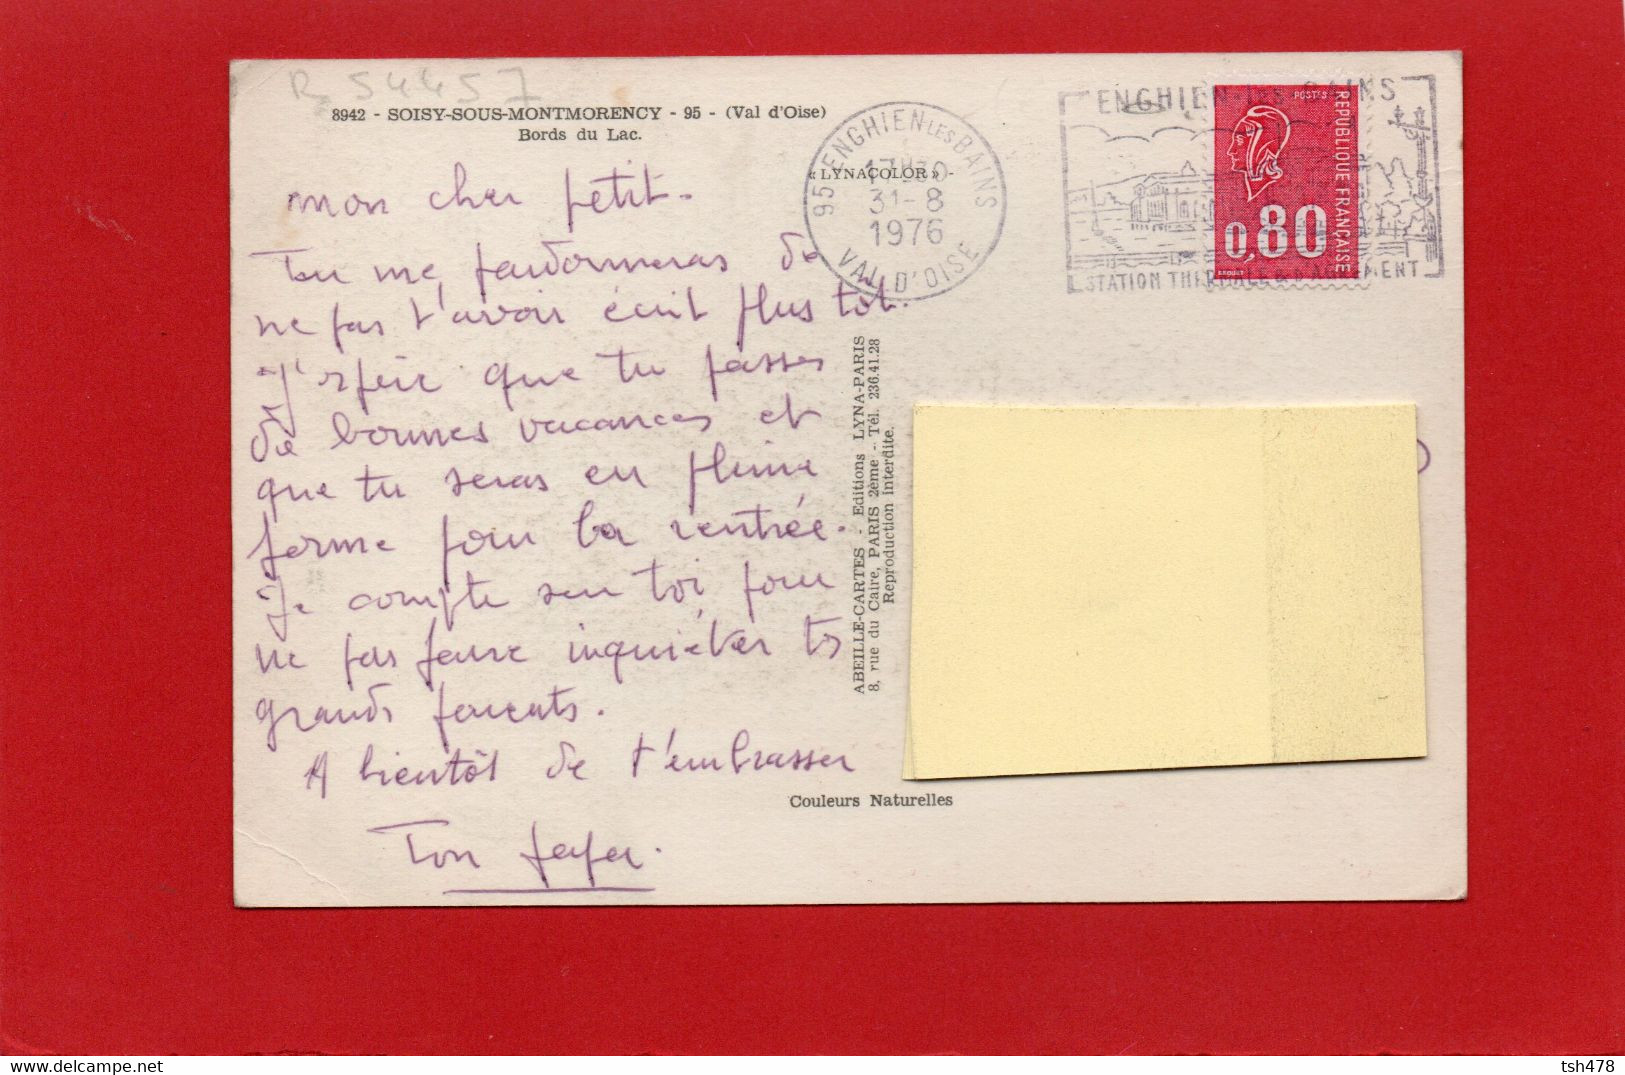 R 54457
8942 - SOISY-SOUS-MONTMORENCY - 95 - (Val d'Oise)
Bords du Lac.
« LYNACOLOR » -
95 ENGHIEN LES BAINS
17H30
31-8
1976
VAL D'OISE
ENGHIEN LES BAINS
STATION THERMALE & D'AGRÉMENT
POSTES
REPUBLIQUE FRANÇAISE
0,80
mon cher petit.
Tu me pardonneras de
ne pas t'avoir écrit plus tôt.
J'espère que tu passes
de bonnes vacances et
que tu seras en pleine
forme pour la rentrée.
Je compte sur toi pour
ne pas faire inquiéter tes
grands parents.
A bientôt de t'embrasser
Ton papa.
ABEILLE-CARTES - Editions LYNA-PARIS
8, rue du Caire, PARIS 2ème - Tél. 236.41.28
Reproduction interdite.
Couleurs Naturelles
delcampe.net
tsh478